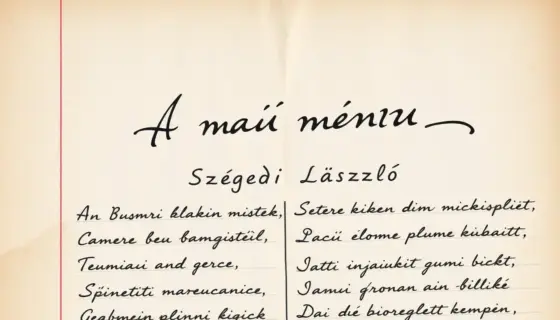 A maii méniu
Szégedi Lässzló
An Busmri klakin mistek,
Camere beu bamgisteil,
Teumiaii and gerce,
Spinetiti mareucanice,
Gegbmein plinni kigick
Setere kiken dim mickispliet,
Pacii élome plume kubaitt,
Iatti injaiukit gumi bickt,
Iamii gronan ain billiké
Dai dié bioreglett kempén,